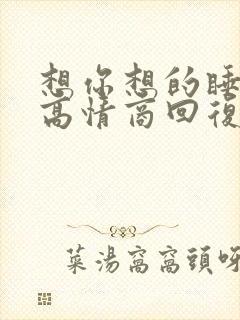 想你想的睡
高情商回復
菜湯窩窩頭呀